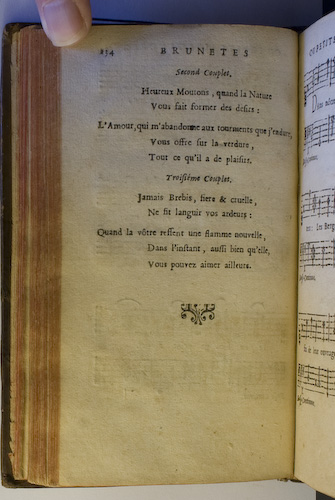 254 BRUNETES
Second Couplet.
Heureux Moutons, quand la Nature
Vous fait former des desirs :
L'Amour, qui m'abandonne aux tourments que j'endure,
Vous offre sur la verdure,
Tout ce qu'il a de plaisirs.
Troisiéme Couplet.
Jamais Brebis, fiere & cruelle,
Ne fit languir vos ardeurs :
Quand la vôtre ressent une flamme nouvelle,
Dans l'instant, aussi bien qu'elle,
Vous pouvez aimer ailleurs.